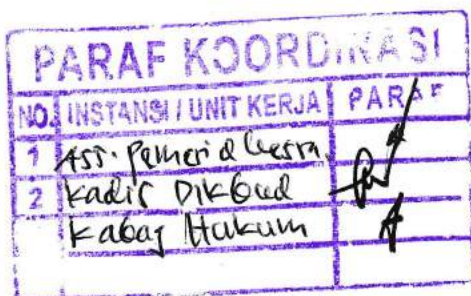 PARAF KOORDINASI
NO. INSTANSI / UNIT KERJA PARAF
1 Ass. Pemeri & Kesra
2 Kadis Dikbud
Kabag Hukum